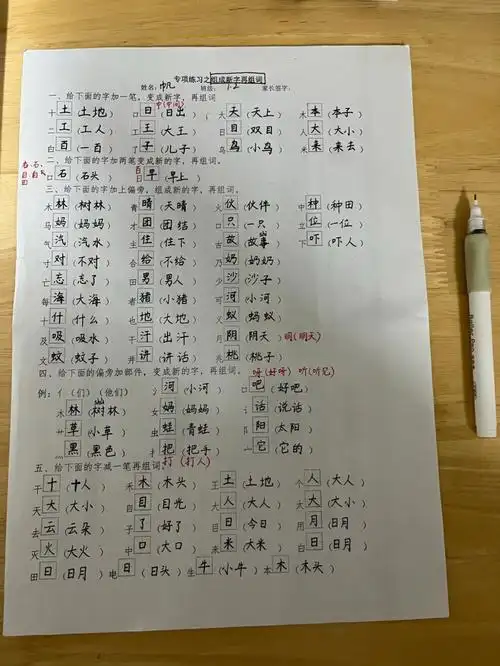 专项练习之组成新字再组词
姓名:帆 班级:12 家长签字:
一、给下面的字加一笔,变成新字,再组词
中(中间)
十 土(土地) 口 日(日出) 大 天(天上) 木 本(本子)
二 工(工人) 工 王(大王) 日 目(双目) 人 大(大小)
白 百(一百) 了 子(儿子) 鸟(小鸟) 米 来(来去)
二、给下面的字加两笔变成新字,再组词。
口 石(石头) 日 早(早上)
三、给下面的字加上偏旁,组成新的字,再组词。
木 林(树林) 青 晴(天晴) 火 伙(伙伴) 中 种(种田)
马 妈(妈妈) 才 团(团结) 口 只(一只) 立 位(一位)
气 汽(汽水) 主 住(住下) 古 故(故事) 下 吓(吓人)
寸 对(不对) 合 给(不给) 乃 奶(奶奶)
亡 忘(忘了) 田 男(男人) 少 沙(沙子)
每 海(大海) 者 猪(小猪) 可 河(小河)
十 什(什么) 也 地(大地) 义 蚁(蚂蚁)
及 吸(吸水) 干 汗(出汗) 月 阴(阴天) 明(明天)
文 蚊(蚊子) 井 讲(讲话) 兆 桃(桃子)
四、给下面的偏旁加部件,变成新字,再组词。 呀(好呀) 听(听见)
例:亻(们)(他们) 氵 河(小河) 口 吧(好吧)
木 林(树林) 女 妈(妈妈) 讠 话(说话)
艹 草(小草) 虫 蛙(青蛙) 阝 阳(太阳)
灬 黑(黑色) 扌 把(把手) 宀 它(它的)
打(打人)
五、给下面的字减一笔再组词。
干 十(十人) 禾 木(木头) 王 土(土地) 个 人(大人)
天 大(大小) 自 目(目光) 大 人(大人) 太 大(大小)
去 云(云朵) 子 了(好了) 目 日(今日) 用 月(日月)
灭 火(大火) 中 口(大口) 来 米(大米) 白 日(日月)
田 日(日月) 电 日(日头) 生 牛(小牛) 本 木(木头)